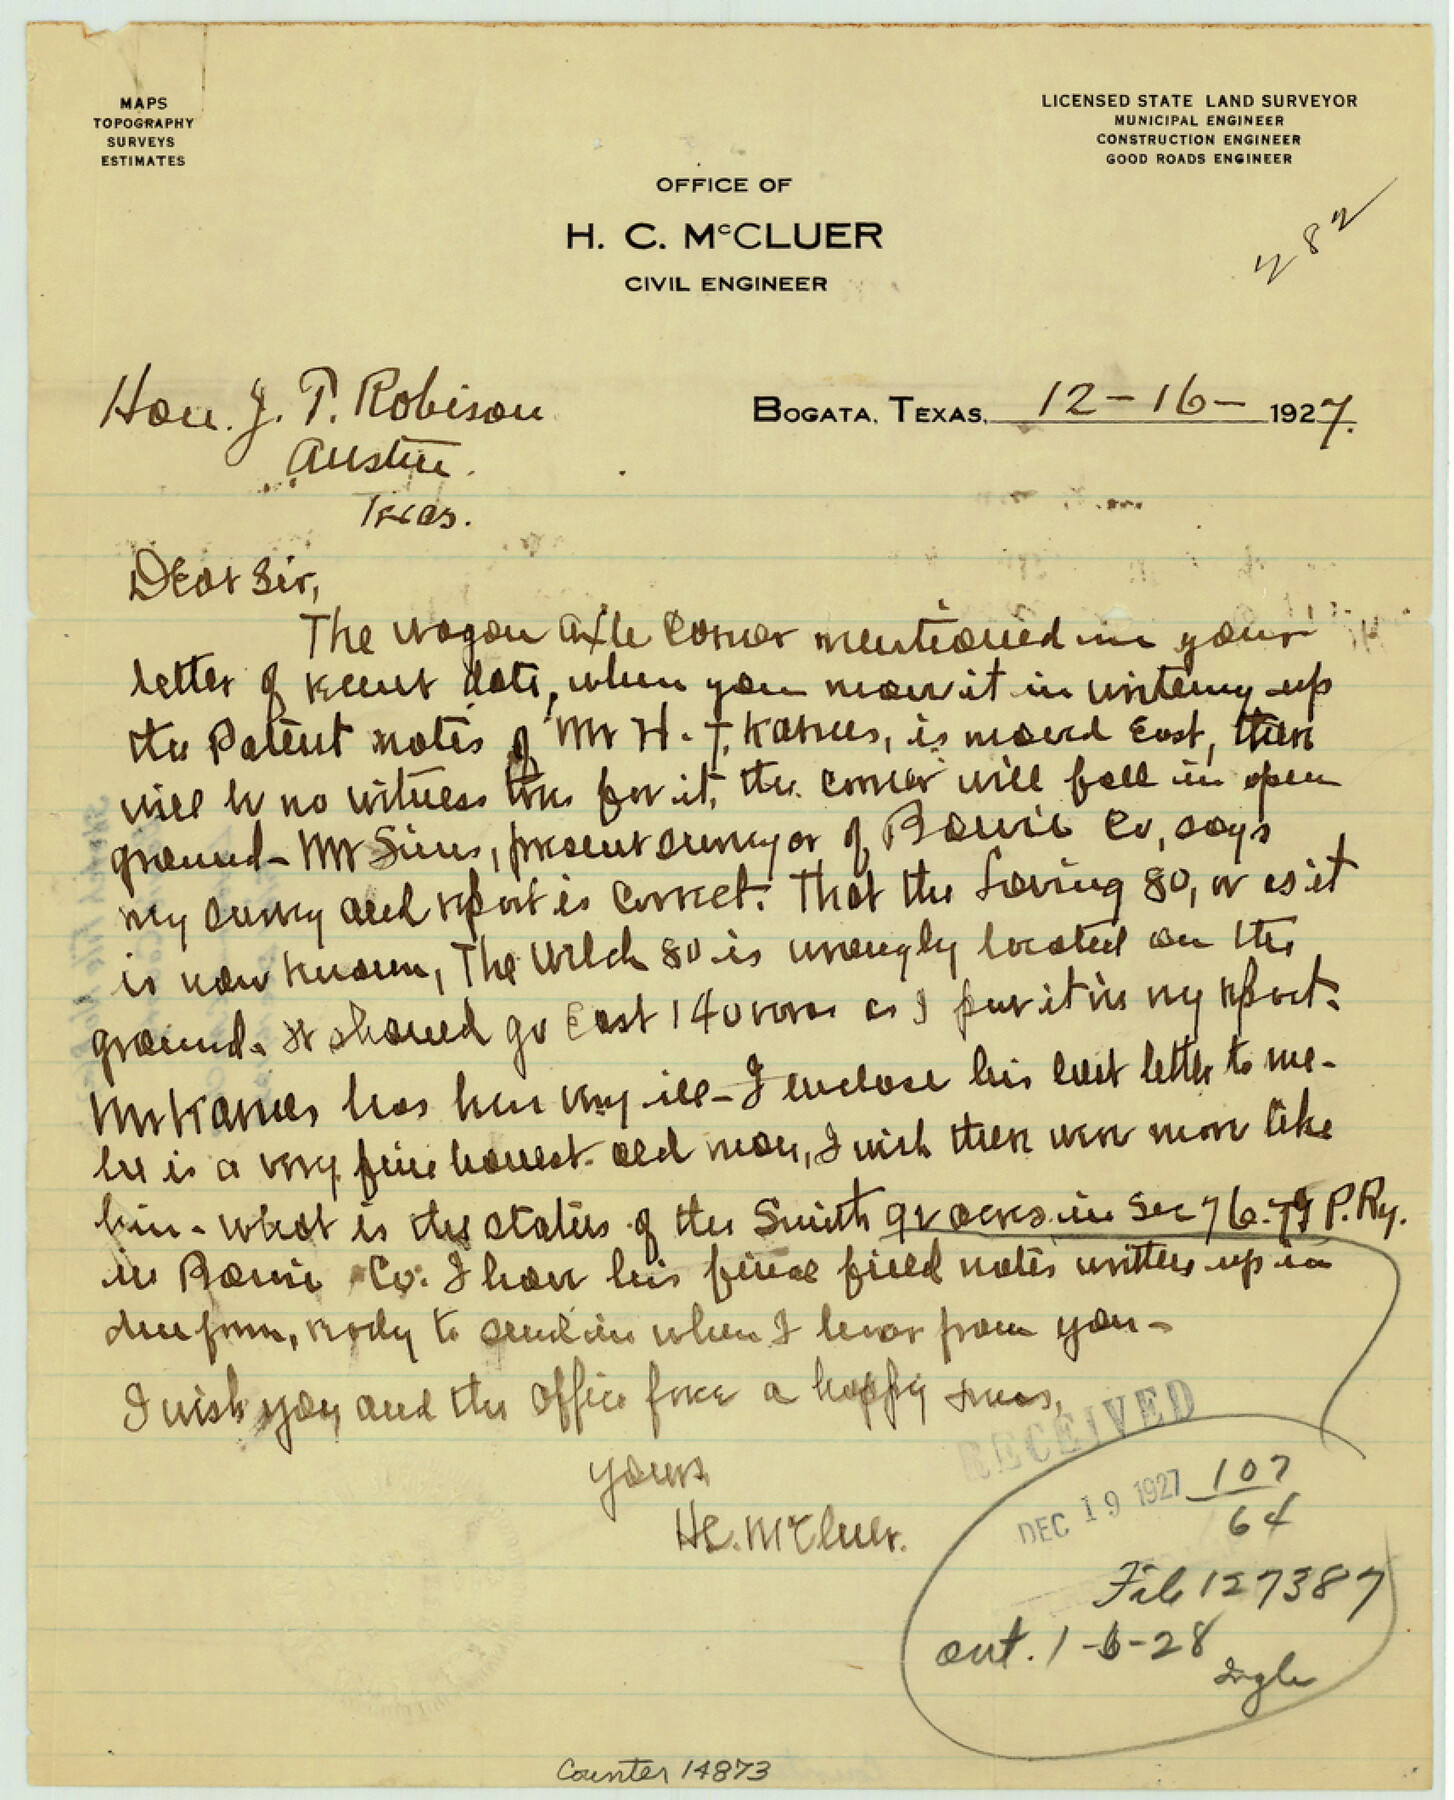 MAPS
TOPOGRAPHY
SURVEYS
ESTIMATES
LICENSED STATE LAND SURVEYOR
MUNICIPAL ENGINEER
CONSTRUCTION ENGINEER
GOOD ROADS ENGINEER
OFFICE OF
H. C. McCLUER
CIVIL ENGINEER
Hon. J. T. Robison
Austin.
Texas.
BOGATA, TEXAS, 12-16- 1927.
Dear Sir,
The wagon axle corner mentioned in your
letter of recent date, when you move it in writing up
the Patent notes of Mr H. T. Karnes, is moved East, there
will be no witness trees for it, the corner will fall in open
ground- Mr Sims, present surveyor of Bowie Co, says
my survey and report is correct. That the Loving 80, or as it
is now known, The Welch 80 is wrongly located on the
ground. It should go East 140 varas as I put it in my report.
Mr Karnes has been very ill- I enclose his last letter to me-
he is a very fine honest old man, I wish there were more like
him- what is the status of the Smith acres in Sec 76. T&P. Ry.
in Bowie Co. I have his final field notes written up in
due form, ready to send in when I hear from you-
I wish you and the office force a happy xmas,
yours
HC. McCluer.
RECEIVED
DEC 19 1927
107
64
File 127387
ant. 1-6-28
Ingle
Counter 14873